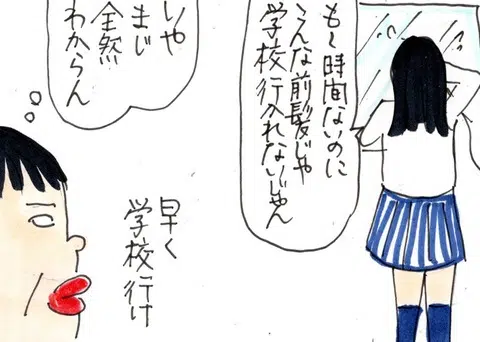 もー時間ないのに
こんな前髪じゃ
学校行れないじゃん
いや
まじ
全然
わからん
早く
学校行け